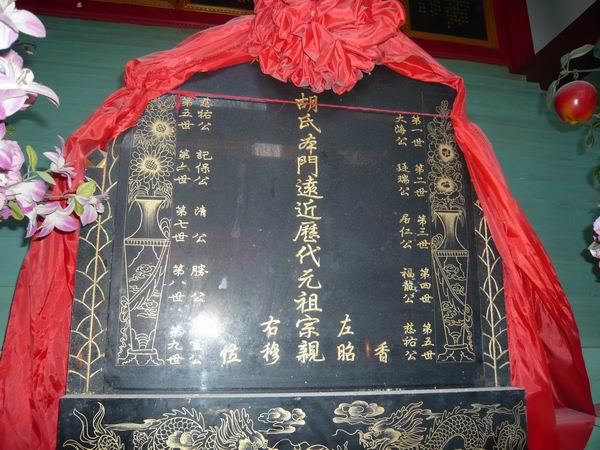 第一世 第二世 第三世 第四世 第五世
大海公 廷瑞公 居仁公 福龍公 慈裕公
香
左昭
胡氏本門遠近歷代元祖宗親
右穆
位
慈裕公 記保公 清公 勝公 公
第五世 第六世 第七世 第八世 第九世